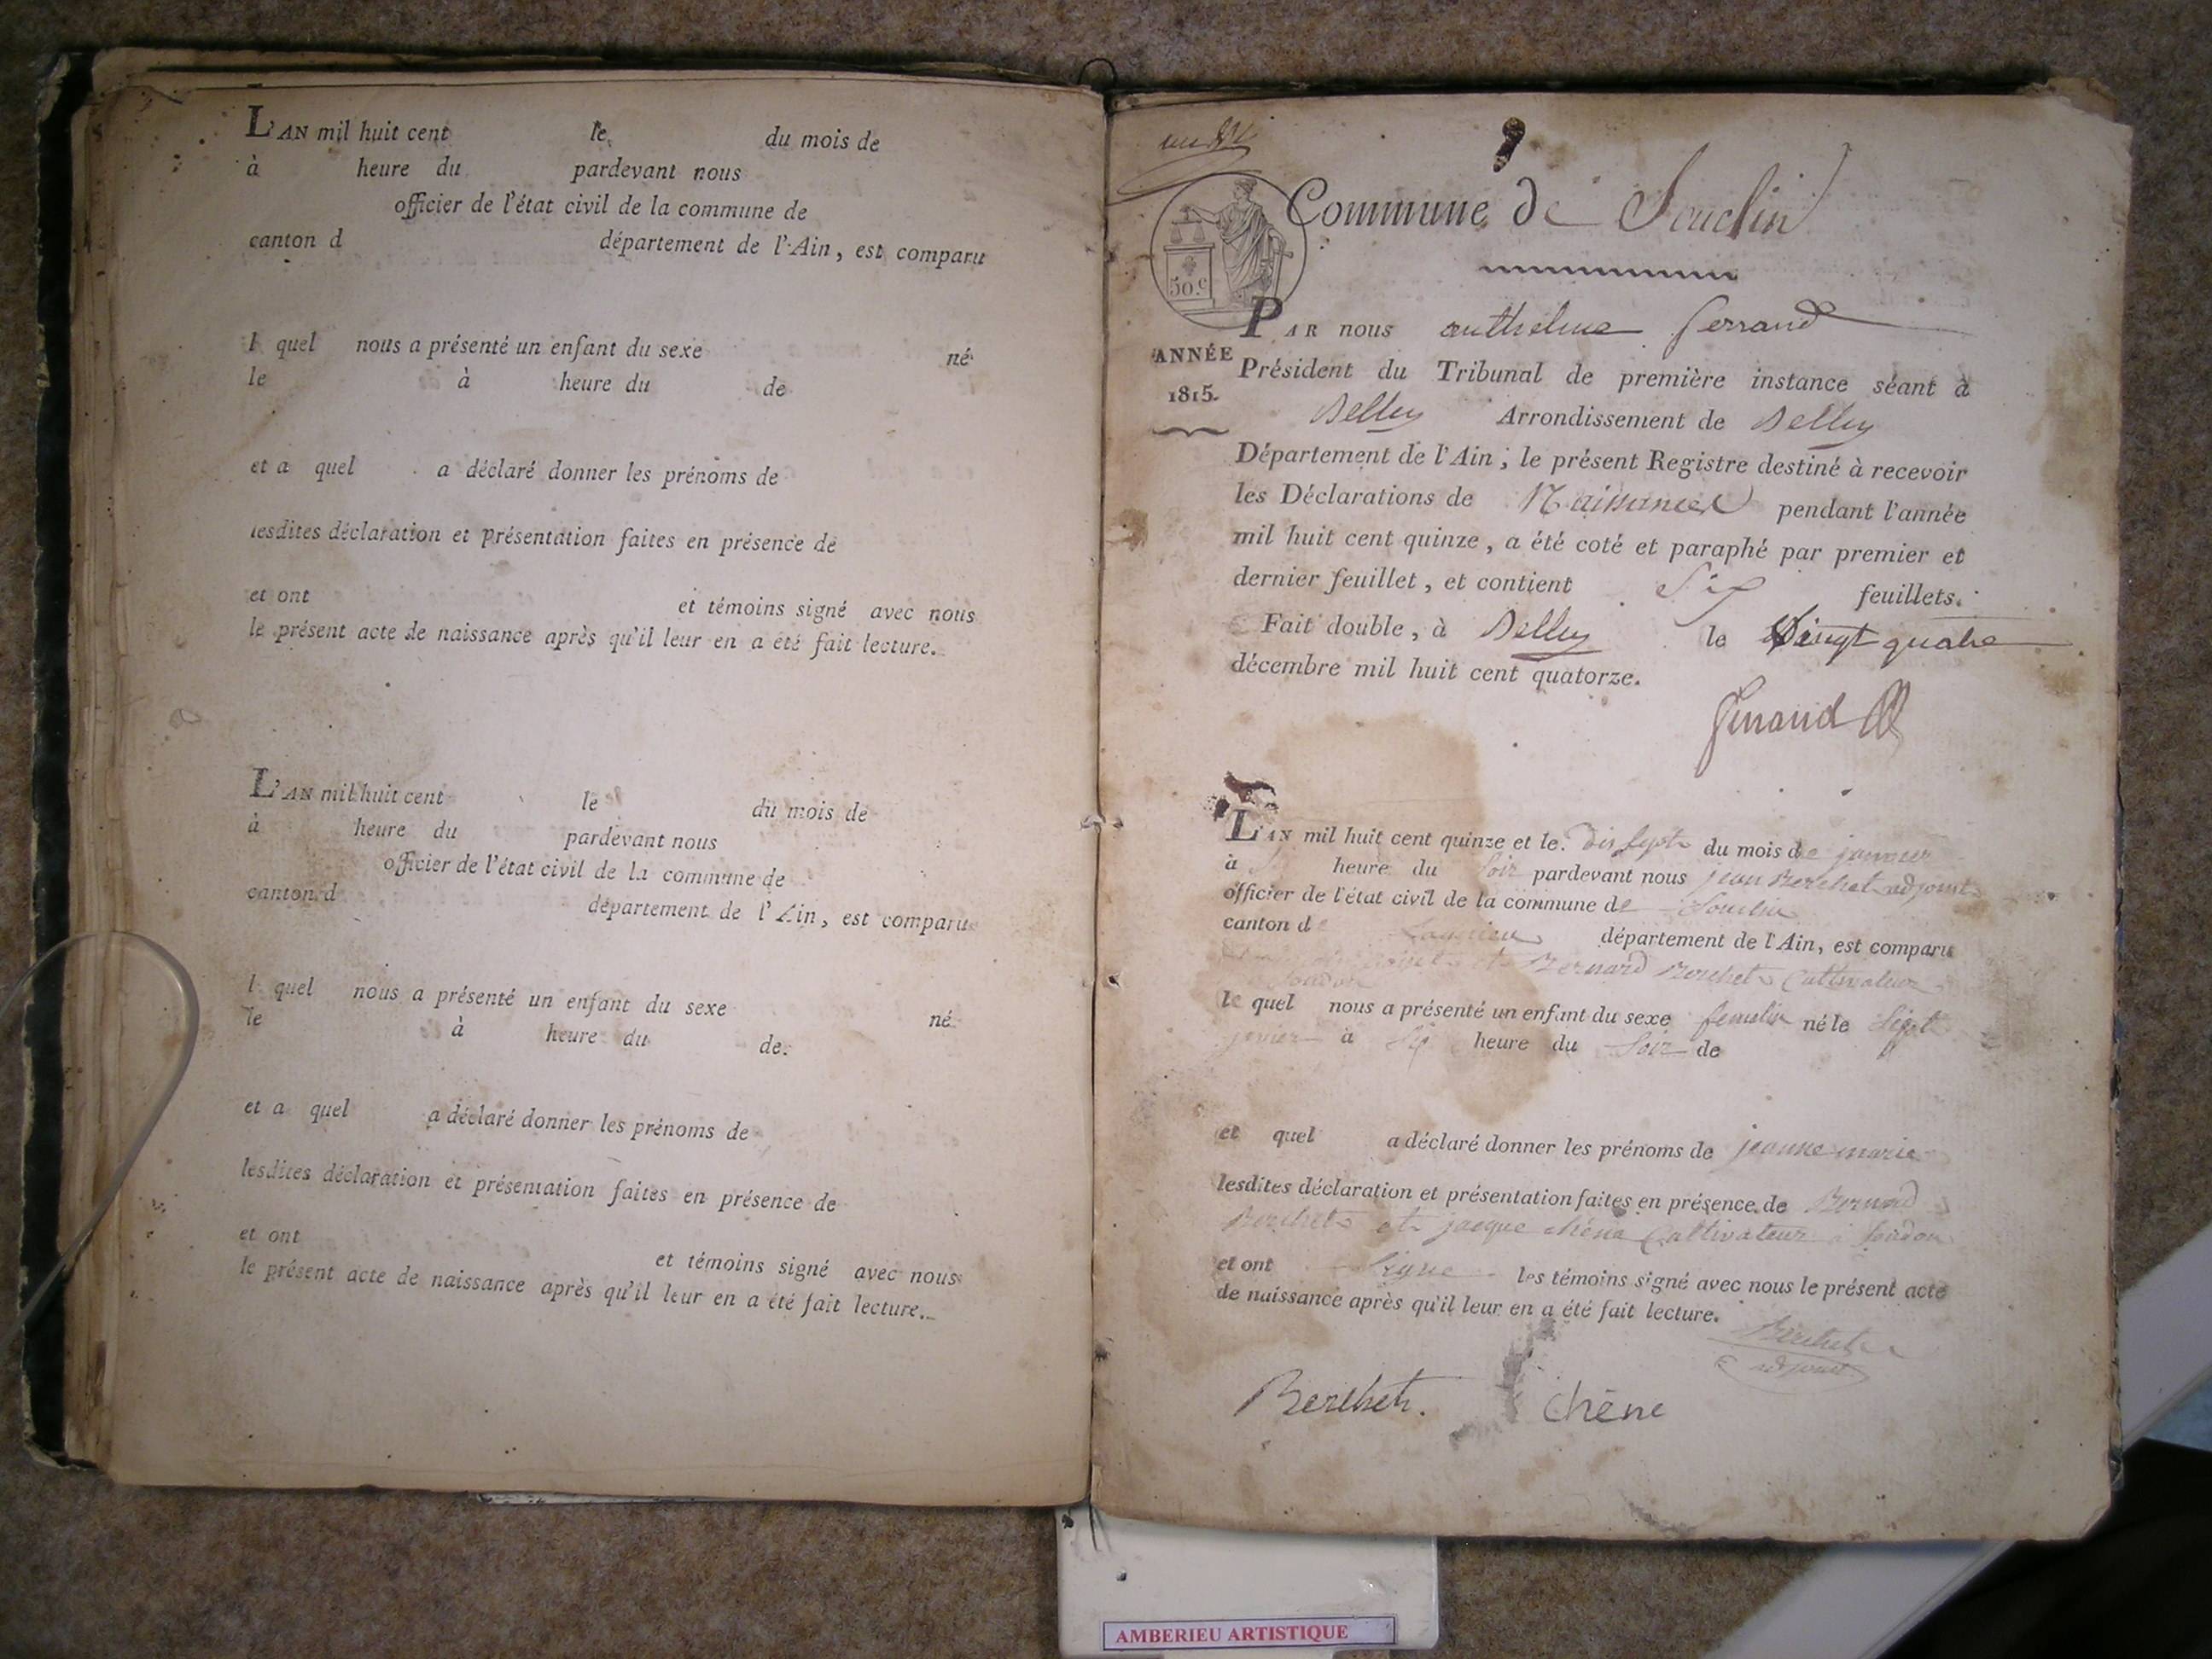 L'AN mil huit cent le du mois de
à heure du pardevant nous
officier de l'état civil de la commune de
canton d département de l'Ain, est comparu
l quel nous a présenté un enfant du sexe né
le à heure du de
et a quel a déclaré donner les prénoms de
lesdites déclaration et présentation faites en présence de
et ont et témoins signé avec nous
le présent acte de naissance après qu'il leur en a été fait lecture.
L'AN mil huit cent le du mois de
à heure du pardevant nous
officier de l'état civil de la commune de
canton d département de l'Ain, est comparu
l quel nous a présenté un enfant du sexe né
le à heure du de
et a quel a déclaré donner les prénoms de
lesdites déclaration et présentation faites en présence de
et ont et témoins signé avec nous
le présent acte de naissance après qu'il leur en a été fait lecture.
Commune de Souclin
50.c
PAR nous anthelme ferrand
ANNÉE
1815.
Président du Tribunal de première instance séant à
Belley Arrondissement de Belley
Département de l'Ain, le présent Registre destiné à recevoir
les Déclarations de Naissances pendant l'année
mil huit cent quinze, a été coté et paraphé par premier et
dernier feuillet, et contient Six feuillets.
Fait double, à Belley le Vingt quatre
décembre mil huit cent quatorze.
ferrand
L'AN mil huit cent quinze et le dix Sept du mois de janvier
à heure du Soir pardevant nous jean Berthet adjoint
officier de l'état civil de la commune de Souclin
canton de Lagnieu département de l'Ain, est comparu
et Bernard Berthet Cultivateur
le quel nous a présenté un enfant du sexe femelin né le Sept
janvier à Six heure du Soir de
et quel a déclaré donner les prénoms de jeanne marie
lesdites déclaration et présentation faites en présence de Bernard
Berthet et jacque chêne Cultivateur à Soudon
et ont Signe les témoins signé avec nous le présent acte
de naissance après qu'il leur en a été fait lecture.
Berthet
adjoint
Berthet. chêne
AMBERIEU ARTISTIQUE